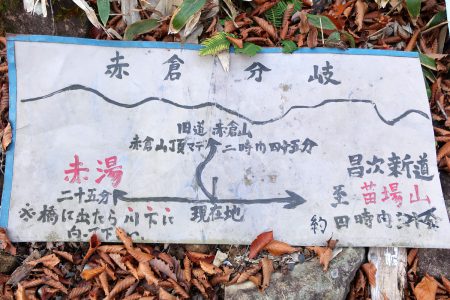 赤倉分岐
旧道 赤倉山
赤倉山丁頁マデ 二時内四十五分
赤湯
二十五分
※橋に出たら川下に
現在地
昌次新道
至 苗場山
約四時内